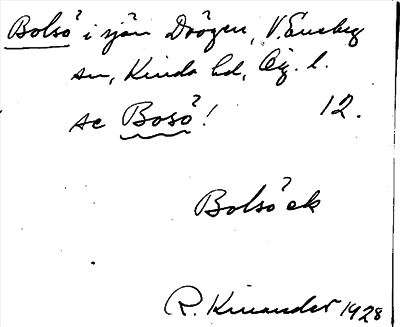 Bolsö i sjön Drögen, V. Eneby
sn, Kinda hd, Ög. l.
se Bosö! 12.
Bolsöek
R. Kinander 1928